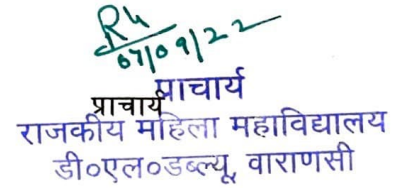 07/09/22
प्राचार्य
प्राचार्य
राजकीय महिला महाविद्यालय
डी०एल०डब्ल्यू, वाराणसी